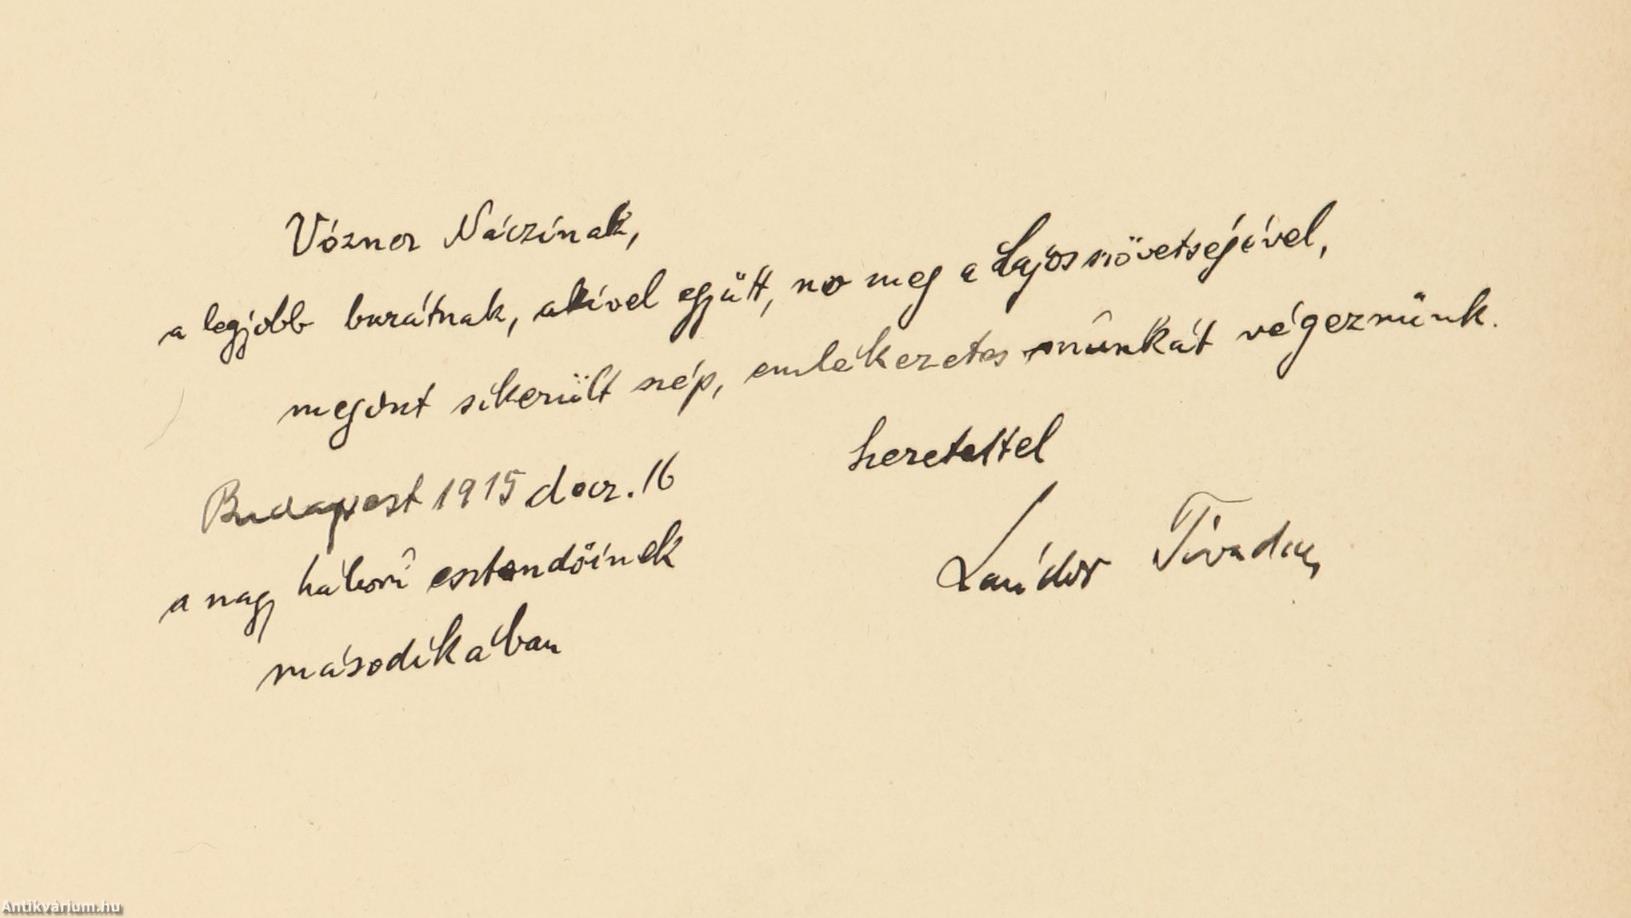 Vózner Náczinak,
a legjobb barátnak, akivel együtt, no meg a Lajos szövetségével,
megint sikerült szép, emlékezetes munkát végeznünk.
Szeretettel
Budapest 1915 decz. 16
Sándor Tivadar
a nagy háború esztendőinek
másodikában
Antikvárium.hu